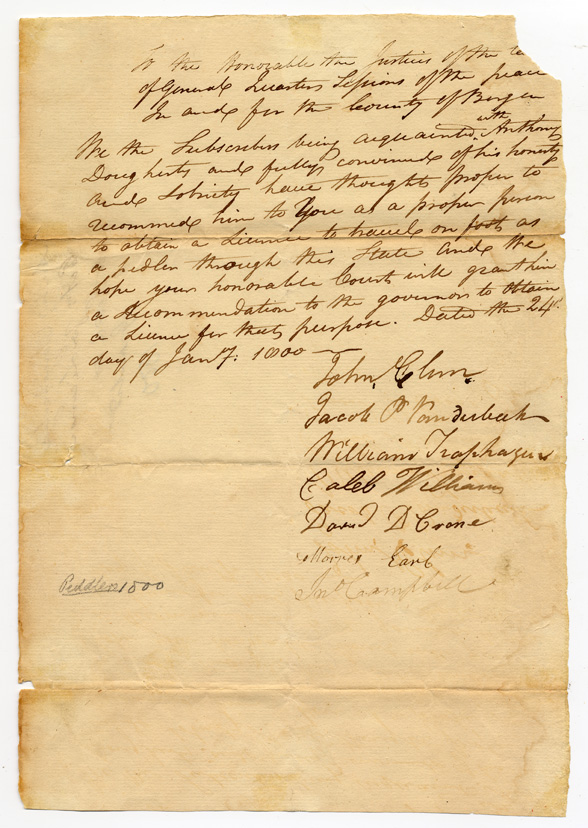 To the Honorable the Justices of the
of General Quarter Sessions of the peace
In and for the County of Bergen
We the Subscribers being acquainted with Anthony
Dougherty and fully convinced of his honesty
and Sobriety have thought proper to
recommend him to You as a proper person
to obtain a Licence to travel on foot as
a pedler through this State and the
hope your honorable Court will grant him
a Recommendation to the governor to obtain
a Licence for that purpose. Dated the 24th
day of Jany: 1800
John
Jacob P Vanderbeek
William Traphagen
Caleb Williams
David D Crane
Earl
Jno Campbell
Peddlers 1800